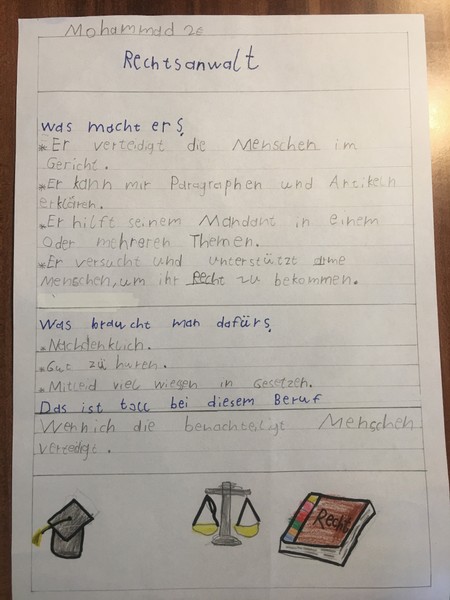 Mohammad 2c
Rechtsanwalt
Was macht er?
*Er verteidigt die Menschen im
Gericht.
*Er kann mir Paragraphen und Artikeln
erklären.
*Er hilft seinem Mandant in einem
Oder mehreren Themen.
*Er versucht und unterstützt arme
Menschen, um ihr Recht zu bekommen.
Was braucht man dafür?
*Nachdenklich.
*Gut zü hören.
*Mitleid viel wiesen in Gesetzen.
Das ist toll bei diesem Beruf
Wenn ich die benachteiligt Menschen
verteidigt.
Recht